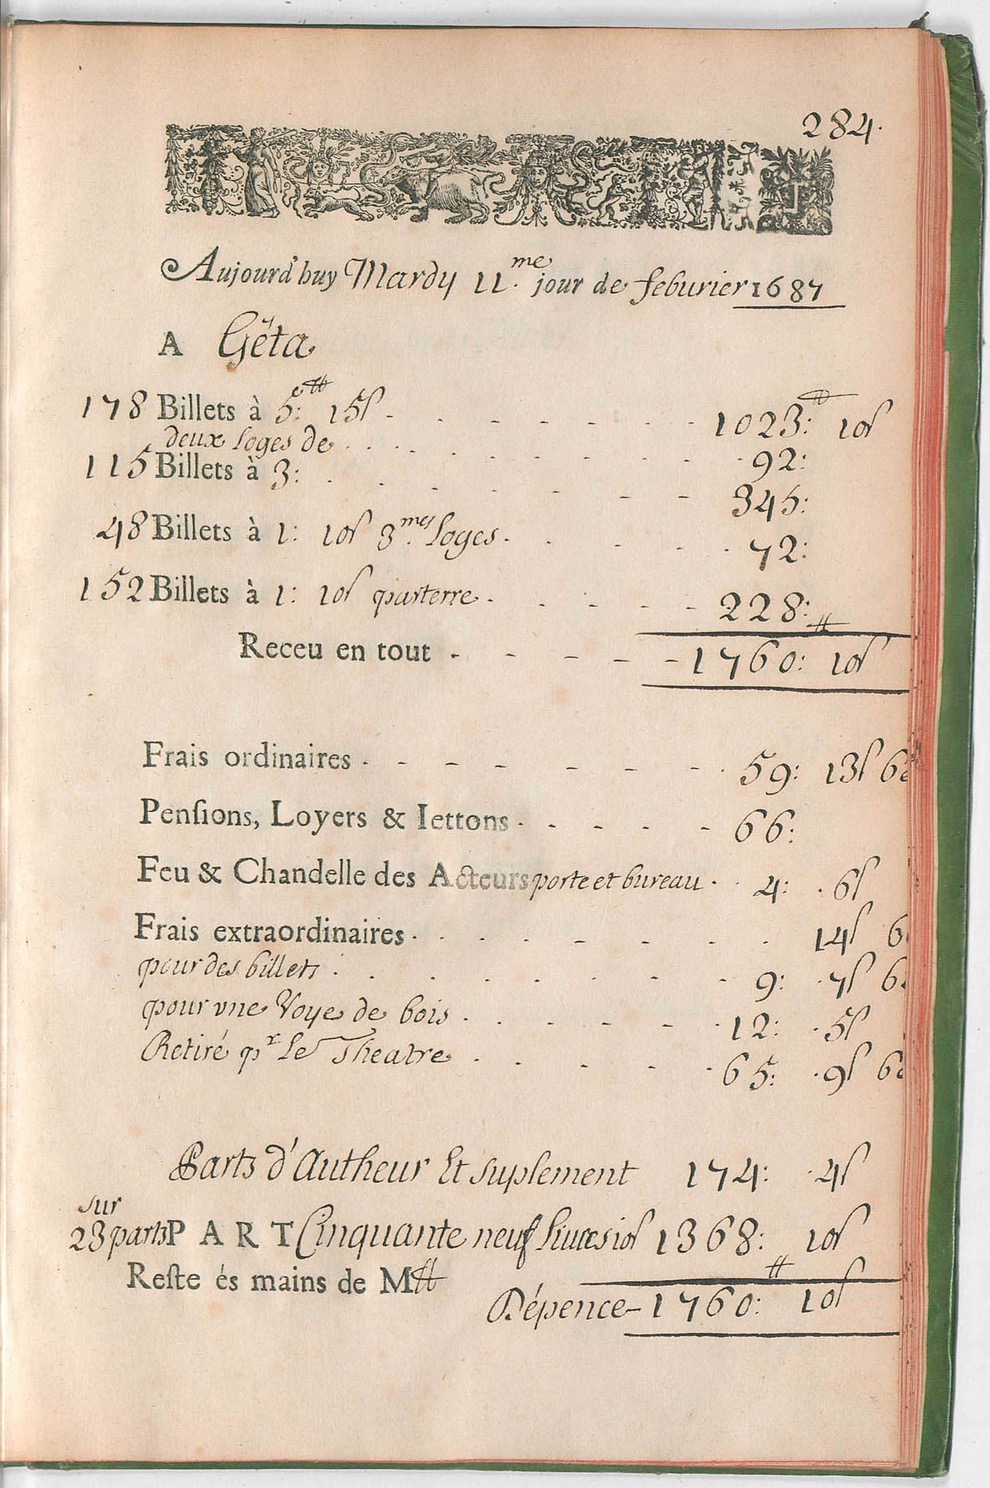 284.
Aujourd'huy Mardy 11.me jour de feburier 1687
A Géta
178 Billets à 5:tt 15ſ - - - - - 1023:tt 10ſ
deux loges de . . . . . . . 92:
115 Billets à 3: . . - - - - 345:
48 Billets à 1: 10ſ 3.mes loges . . . - . 72:
152 Billets à 1: 10ſ parterre . . . - - 228:
Receu en tout - - - - - - 1760:tt 10ſ
Frais ordinaires - - - - - - - 59: 13ſ 6d
Penſions, Loyers & Iettons - - - - - 66:
Feu & Chandelle des Acteurs porte et bureau . . 4: . 6ſ
Frais extraordinaires . . . . - - - . 14ſ 6
pour des billets . . . . . . . 9: . 7ſ 6d
pour vne Voye de bois . . . . . - 12: . 5ſ
Retiré pr Le Theatre . . . . . 65: . 9ſ 6d
Parts d'Autheur Et suplement 174: . 4ſ
sur
23 parts PART Cinquante neuf liures 10ſ 1368: 10ſ
Reſte és mains de Mtt
Dépence - 1760:tt 10ſ